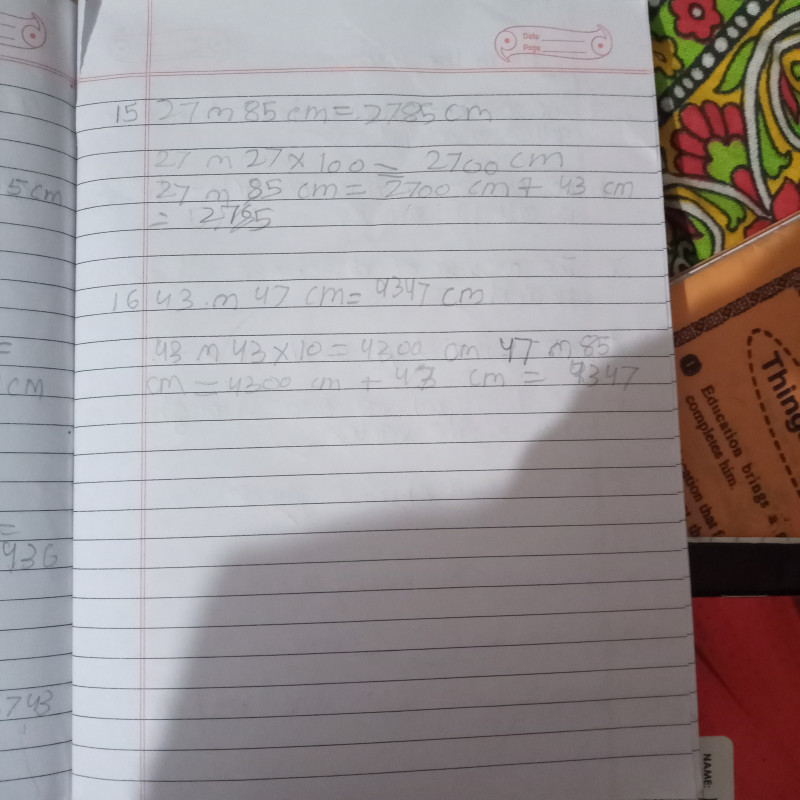 Date
Page
5 cm
=
cm
=
936
743
15 27 m 85 cm = 2785 cm
27 m 27 × 100 = 2700 cm
27 m 85 cm = 2700 cm + 43 cm
= 2785
16 43 m 47 cm = 4347 cm
43 m 43 × 10 = 4300 cm 47 m 85
cm = 4300 cm + 47 cm = 4347
Thing
1 Education brings a
completes him.
NAME: